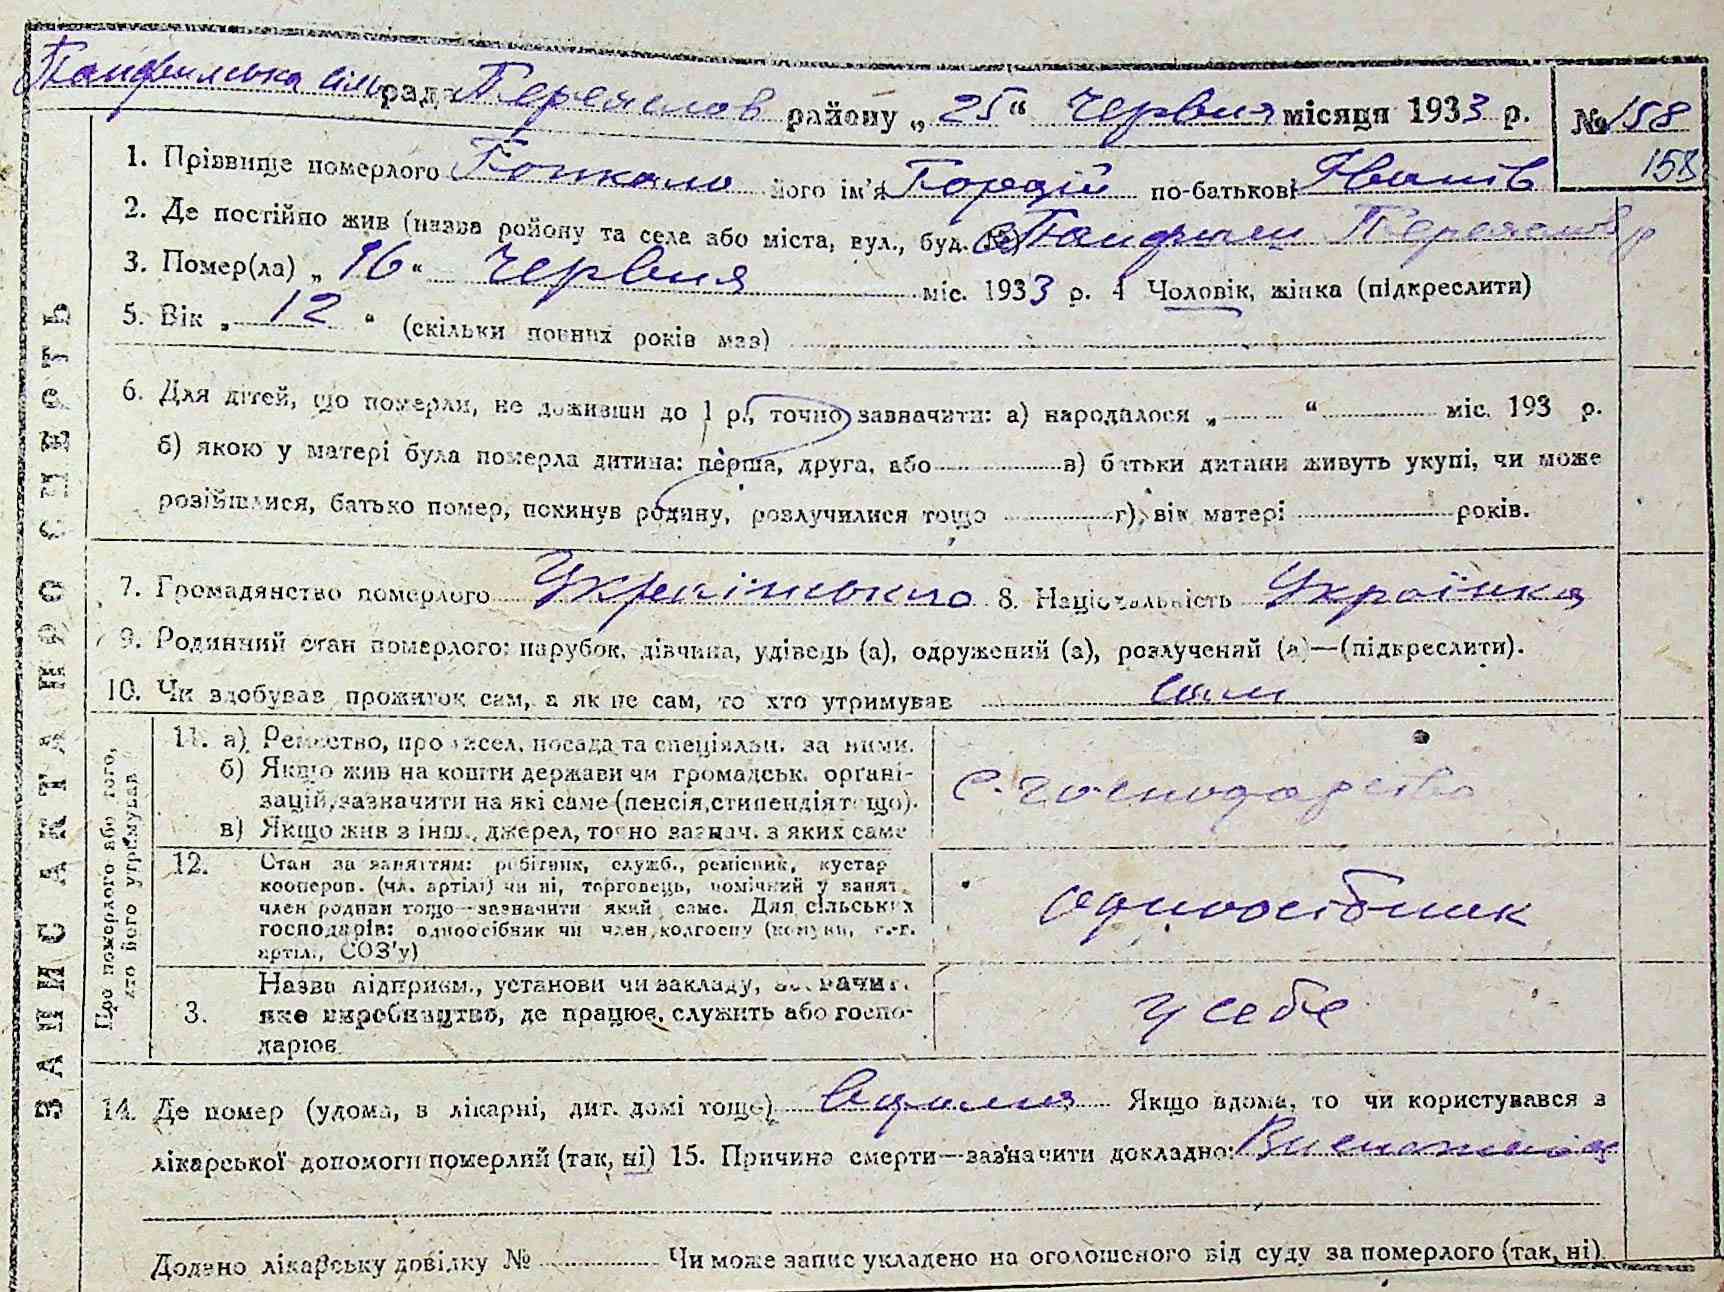 Панфильська сіль рада Переяслов району „25“ Червня місяця 1933 р. № 158
158
1. Прізвище померлого його ім'я Гордій по-батькові Іванів
2. Де постійно жив (назва району та села або міста, вул., буд. №) Панфили Переяслов р
3. Помер(ла) „16“ Червня міс. 1933 р. 4 Чоловік, жінка (підкреслити)
5. Вік „12“ (скільки повних років мав)
6. Для дітей, що померли, не доживши до 1 р., точно зазначити: а) народилося „ “ міс. 193 р.
б) якою у матері була померла дитина: перша, друга, або в) батьки дитини живуть укупі, чи може
розійшлися, батько помер, покинув родину, розлучилися тощо г) вік матері років.
7. Громадянство померлого Українського 8. Національність Українка
9. Родинний стан померлого: парубок, дівчина, удівець (а), одружений (а), розлучений (а)—(підкреслити).
10. Чи здобував прожиток сам, а як не сам, то хто утримував сам
ЗАПИС АКТА ПРО СМЕРТЬ
Про померлого або того,
хто його утримував
11. а) Ремество, промисел, посада та спеціяльн. за ними.
б) Якщо жив на кошти держави чи громадськ. органі-
зацій, зазначити на які саме (пенсія, стипендія тощо).
в) Якщо жив з інш., джерел, точно зазнач. з яких саме
с. господарство
12. Стан за заняттям: робітник, служб., ремісник, кустар
кооперов. (чл. артілі) чи ні, торговець, помічний у занят.
член родини тощо—зазначити який саме. Для сільських
господарів: одноосібник чи член колгоспу (комуни, с.-г.
артілі, СОЗ'у)
одноосібник
3. Назва підприєм., установи чи закладу, зазначит.
яке виробництво, де працює, служить або госпо-
дарює
у себе
14. Де помер (удома, в лікарні, дит. домі тощо) Вдома Якщо вдома, то чи користувався з
лікарської допомоги померлий (так, ні) 15. Причина смерти—зазначити докладно: Виснаження
Додано лікарську довідку № Чи може запис укладено на оголошеного від суду за померлого (так, ні).